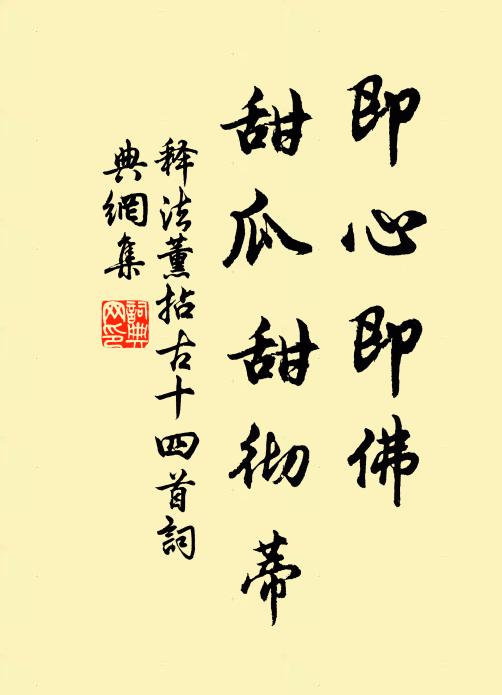 即心即佛
甜瓜甜彻蒂
释法薰拈古十四首詞
典網集
詞典
网印